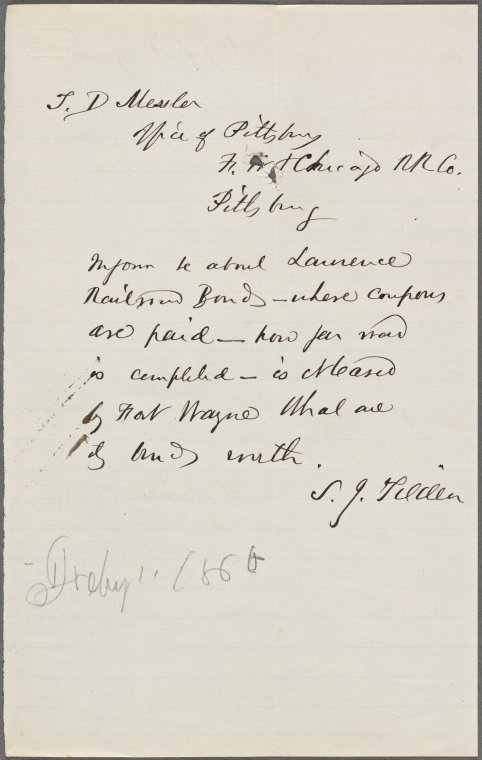 T. D Messler
Office of Pittsburg
Ft. W & Chicago RR Co.
Pittsburg
Inform me about Lawrence
Railroad Bonds – where coupons
are paid – how far road
is completed – is it leased
by Fort Wayne What are
its bonds worth.
S. J. Tilden
186